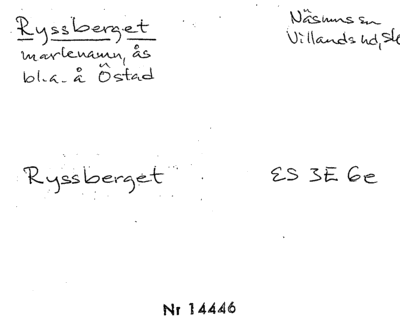 Ryssberget
Näsums sn
marknamn, ås
Villands hd, Sk
bl.a. å Östad
Ryssberget
ES 3E 6e
Nr 14446